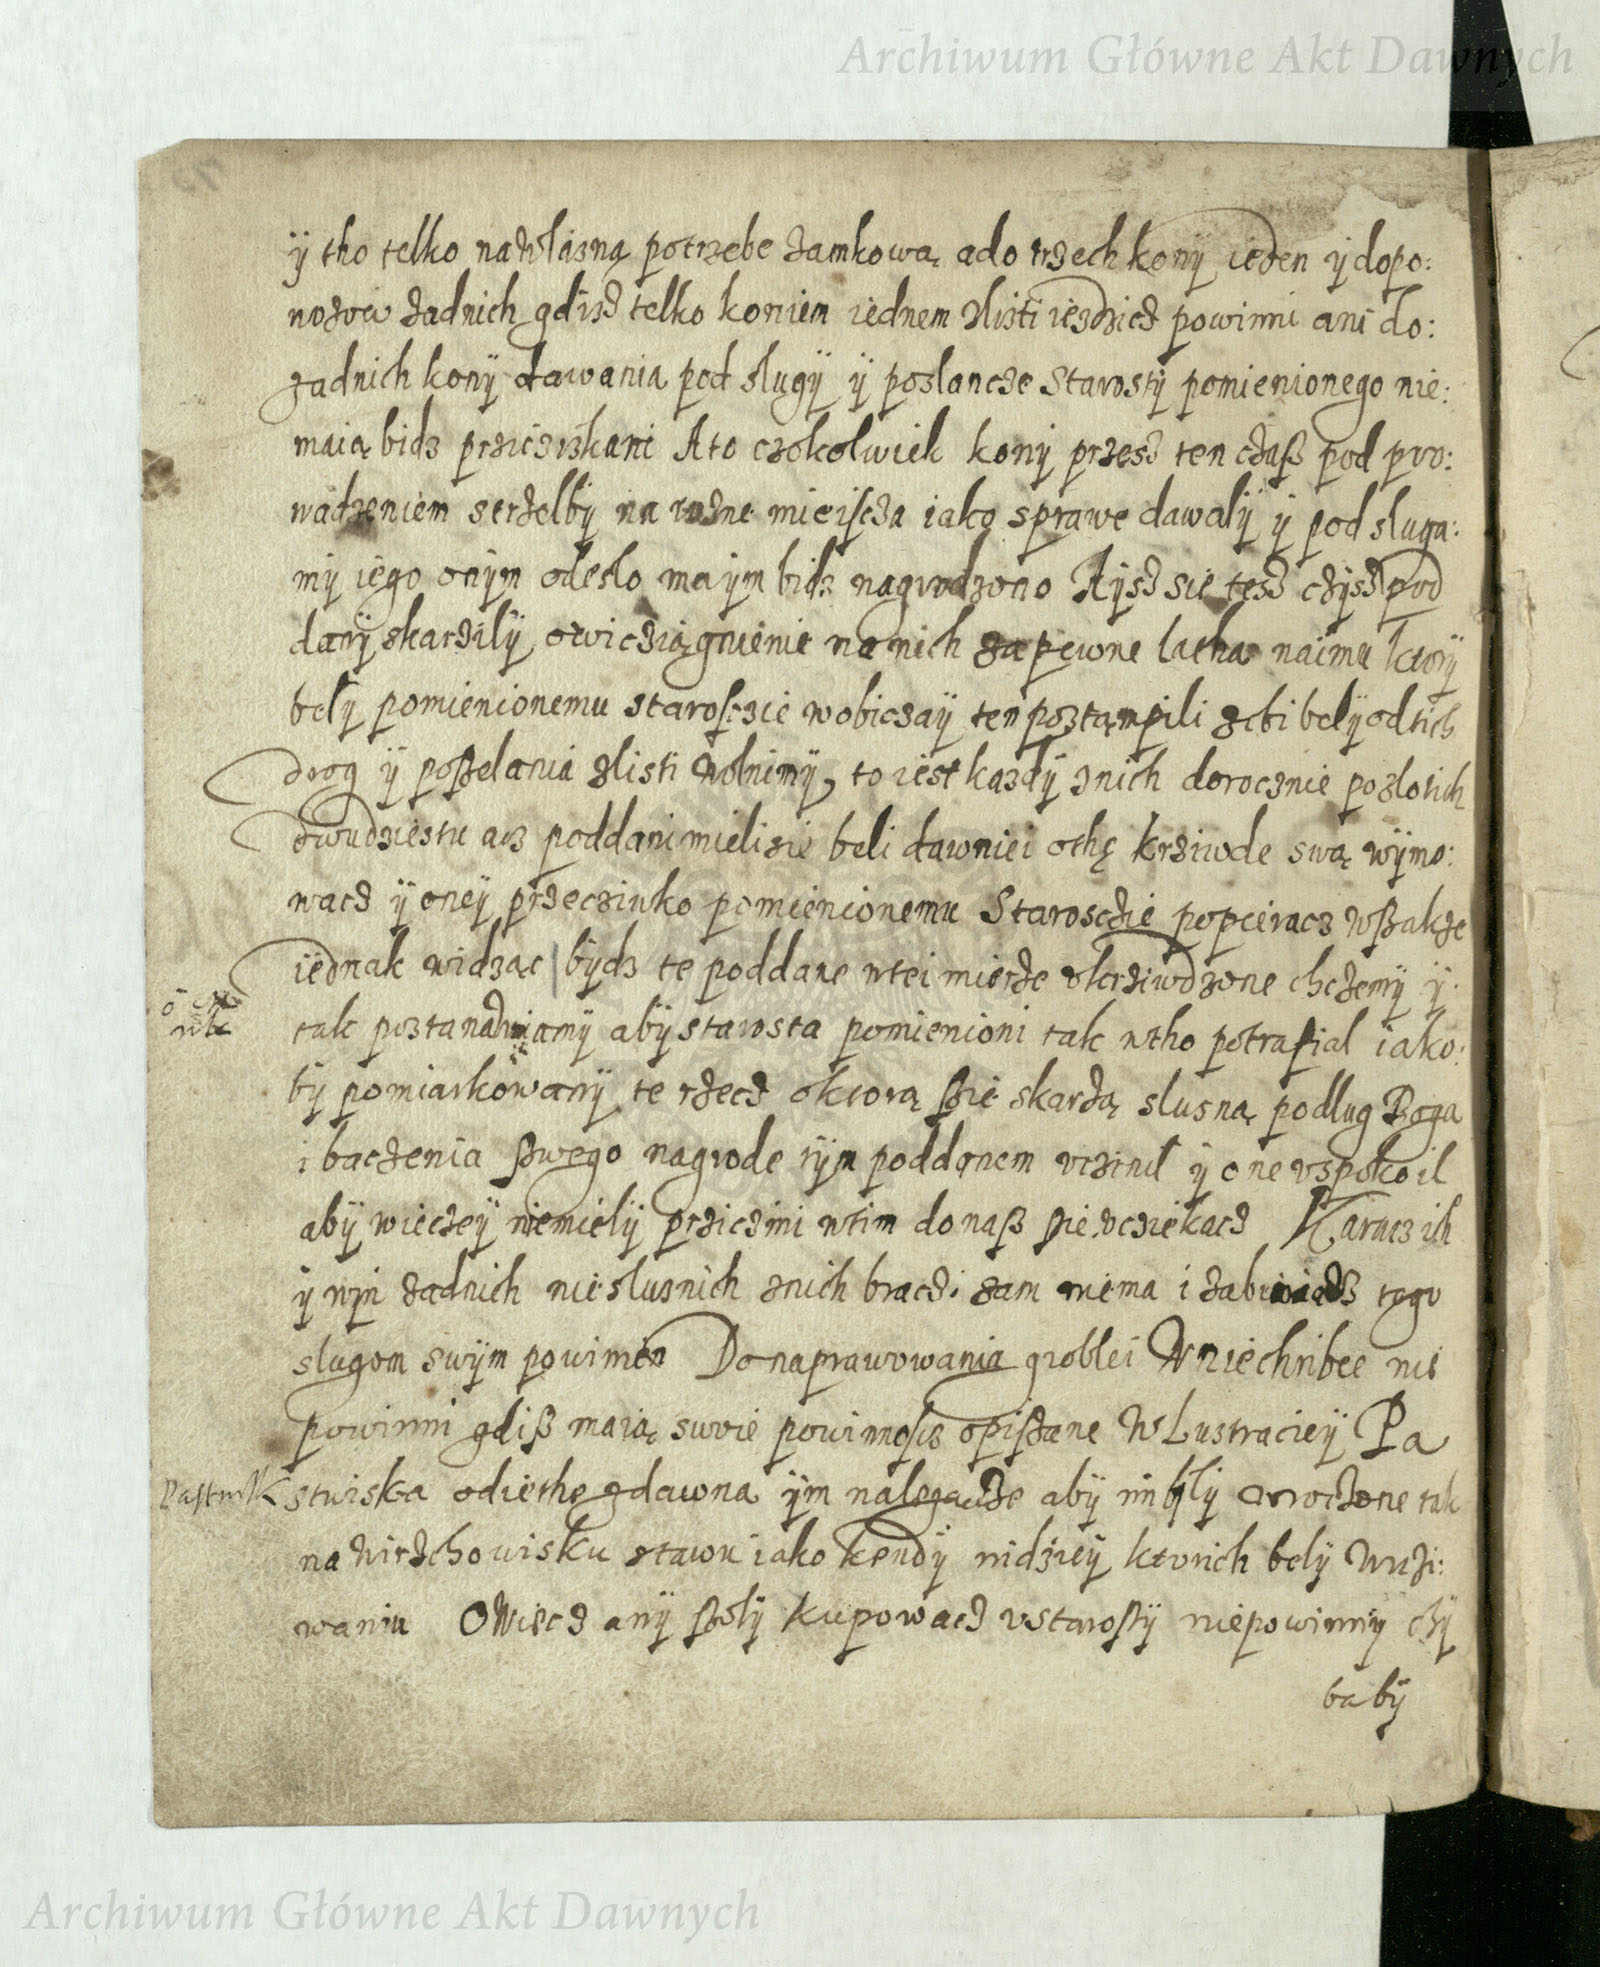 Archiwum Główne Akt Dawnych
ÿ tho telko na własną potrzebe zamkową ado trzech konÿ ieden ÿ dopo:
zadnich gdisz telko koniem iednem zlisti iezdzicz powinni ani do:
zadnich konÿ dawania pod slugÿ ÿ poslancze Starostÿ pomienionego nie:
maią bidz prziciskani Ato czokolwiek konÿ przesz ten czasz pod pro:
wadzeniem strzelbÿ na rozne mieiscza iako sprawe dawalÿ ÿ pod sluga:
mÿ iego onÿm odeslo maÿm bidz nagrodzono Aÿsz sie tesz cziż pod
danÿ skarzilÿ o wicziągnienie na nich za pewne latha naimu ktorÿ
belÿ pomienionemu staroscie wobiczaÿ ten postąmpili zebi belÿ od tich
drog ÿ poszelania zlisti wolnimÿ, to iest kazdÿ znich dorocznie po zlotich
dwudziestu acz poddani mieli sie beli dawniei othę krziwde swą wÿmo:
wacz ÿ oneÿ przecziwko pomienionemu Staroscie popieracz wszakze
iednak widząc bÿdz te poddane wtei mierze ukrziwdzone chczemÿ ÿ
tak postanawiamÿ abÿ starosta pomienioni tak wtho potrafial iako:
bÿ pomiarkowanÿ te rzecz oktorą szie skarzą slusną podlug Boga
i baczenia szwego nagrode tÿm poddanem uczinil ÿ one uspokoil
abÿ wieczeÿ niemielÿ prziczini wtim do nasz szie ucziekacz Karacz ich
ÿ win zadnich nieslusnich znich bracz sam niema i zabraniacz tego
slugom swÿm powinien Do naprawowania groblei Wniechribce nie
powinni gdisz maią swoie powinnoscz opiszane W Lustracieÿ Pa
stwiska odiethe zdawna ÿm nalezącze abÿ im bÿlÿ wroczone tak
na wirzchowisku stawu iako kendÿ nidzieÿ ktorich belÿ Wuzi:
waniu OWiecz anÿ szolÿ kupowacz u starostÿ niepowinnÿ czÿ
babÿ
Archiwum Główne Akt Dawnych